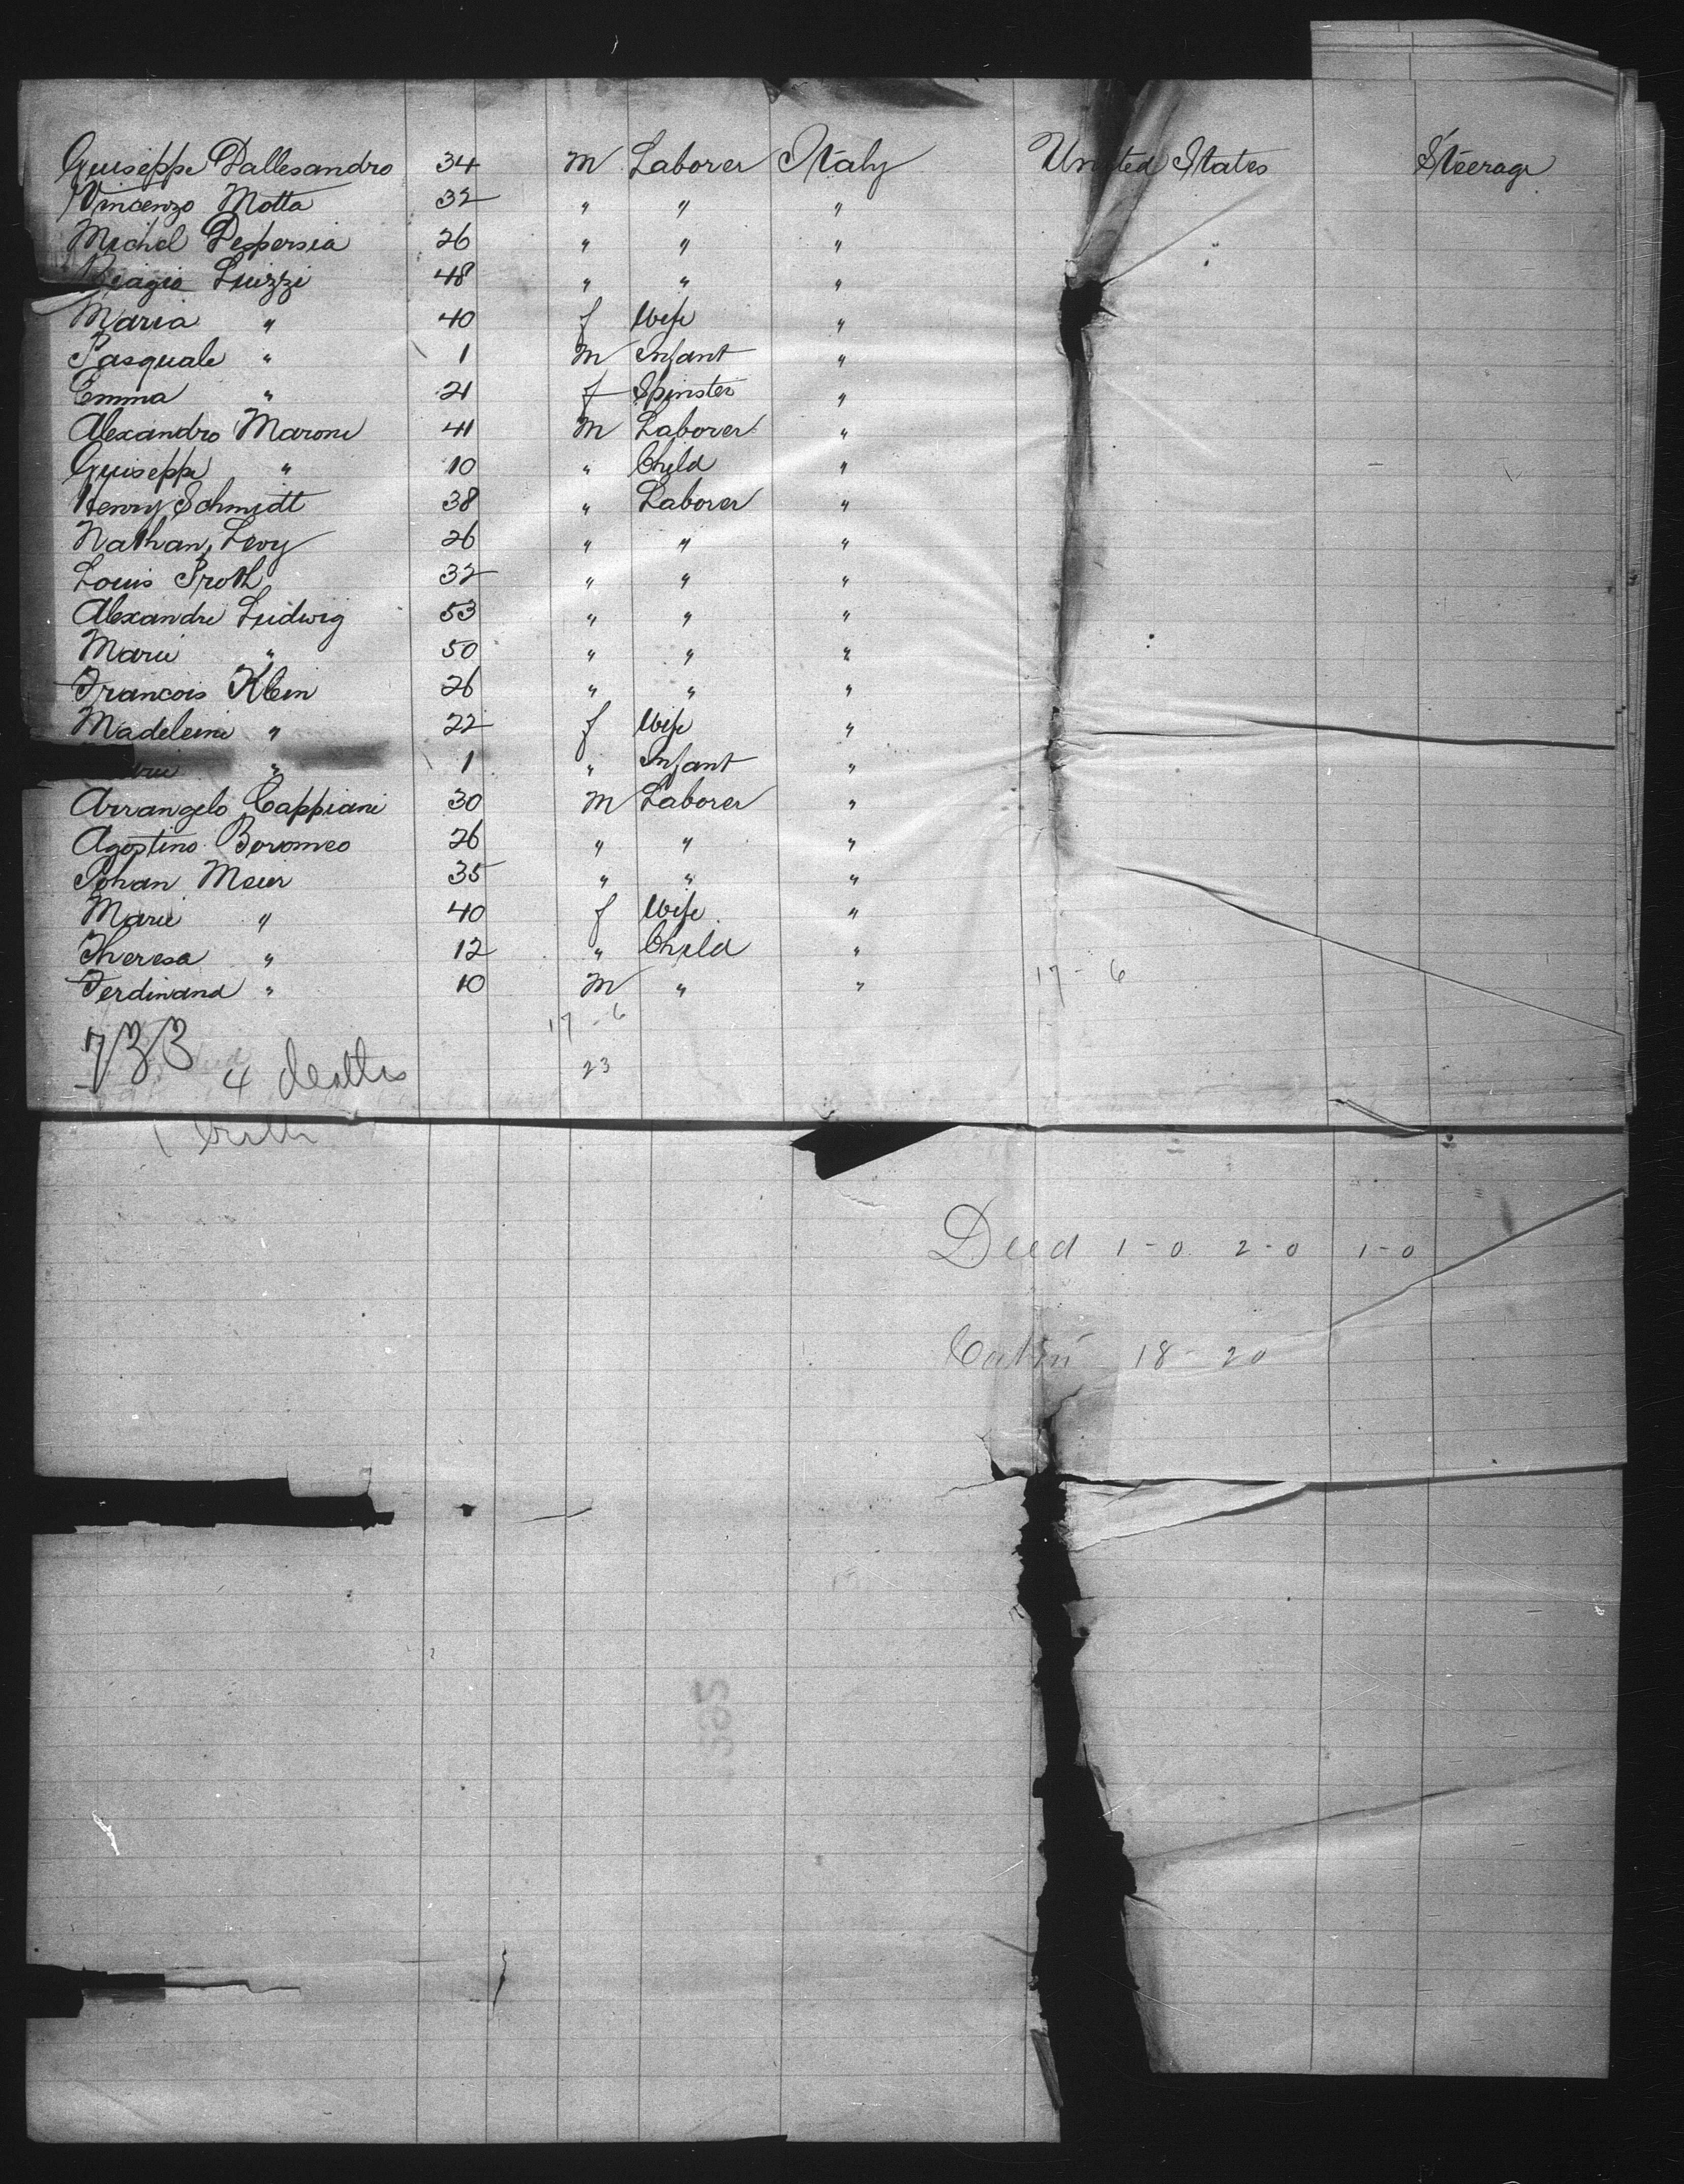 Guiseppe Dallesandro 34 m Laborer Italy United States Steerage
Vincenzo Motta 32 " " "
Michel Despersia 26 " " "
Biagio Luizzi 48 " " "
Maria " 40 f Wife "
Pasquale " 1 m Infant "
Emma " 21 f Spinster "
Alexandro Maroni 41 m Laborer "
Guiseppe " 10 " Child "
Henry Schmidt 38 " Laborer "
Nathan Levy 26 " " "
Louis Proth 32 " " "
Alexandre Ludwig 53 " " "
Marie " 50 " " "
Francois Klein 26 " " "
Madeleine " 22 f Wife "
" 1 " Infant "
Arrangelo Cappiani 30 m Laborer "
Agostino Boromeo 26 " " "
Johan Meier 35 " " "
Marie " 40 f Wife "
Theresa " 12 " Child "
Ferdinand " 10 m " " 17 - 6
17 - 6
733 4 deaths 23
1 birth
Died 1-0 2-0 1-0
Cabin 18 - 20
565